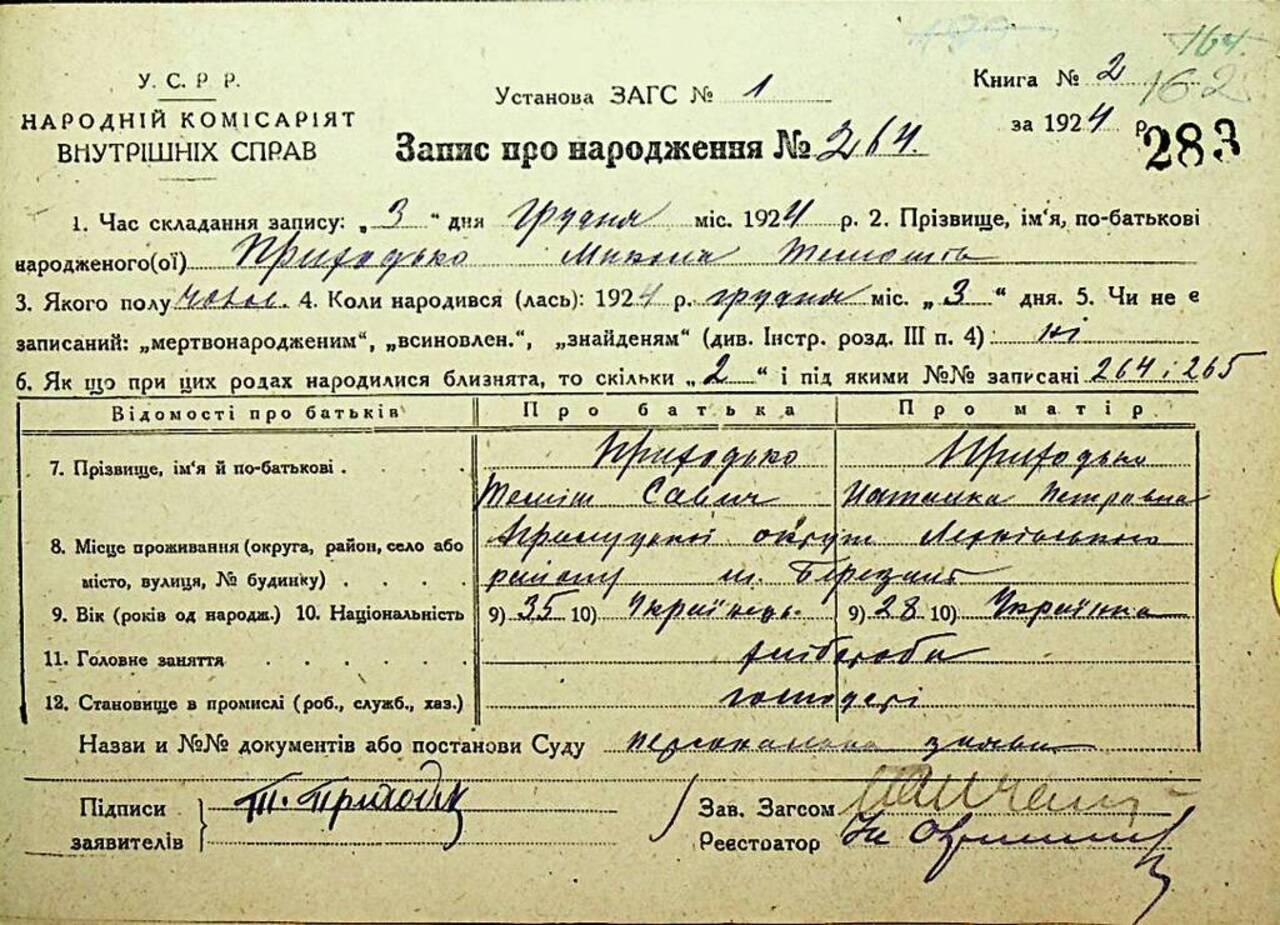 164.
У. С. Р Р.
НАРОДНІЙ КОМІСАРІЯТ
ВНУТРІШНІХ СПРАВ
Установа ЗАГС № 1
Книга № 2
162
за 1924 р.
283
Запис про народження № 264.
1. Час складання запису: „3“ дня грудня міс. 1924 р. 2. Прізвище, ім‘я, по-батькові
народженого(ої) Приходько Микола
3. Якого полу чолов. 4. Коли народився (лась): 1924 р. грудня міс. „3“ дня. 5. Чи не є
записаний: „мертвонародженим“, „всиновлен.“, „знайденям“ (див. Інстр. розд. III п. 4) ні
6. Як що при цих родах народилися близнята, то скільки „2“ і під якими №№ записані 264 і 265
Відомості про батьків Про батька Про матір
7. Прізвище, ім‘я й по-батькові . . . . Приходько Приходько
Савич Петровна
8. Місце проживання (округа, район, село або Прилуцької округи
місто, вулиця, № будинку) . . . . району м. Березань
9. Вік (років од народж.) 10. Національність 9) 35 10) Українець 9) 28 10) Українка
11. Головне заняття . . . . . . хлібороби
12. Становище в промислі (роб., служб., хаз.) господарі
Назви и №№ документів або постанови Суду персональна заява
Підписи
заявителів
Т. Приходько
Зав. Загсом
Реєстратор